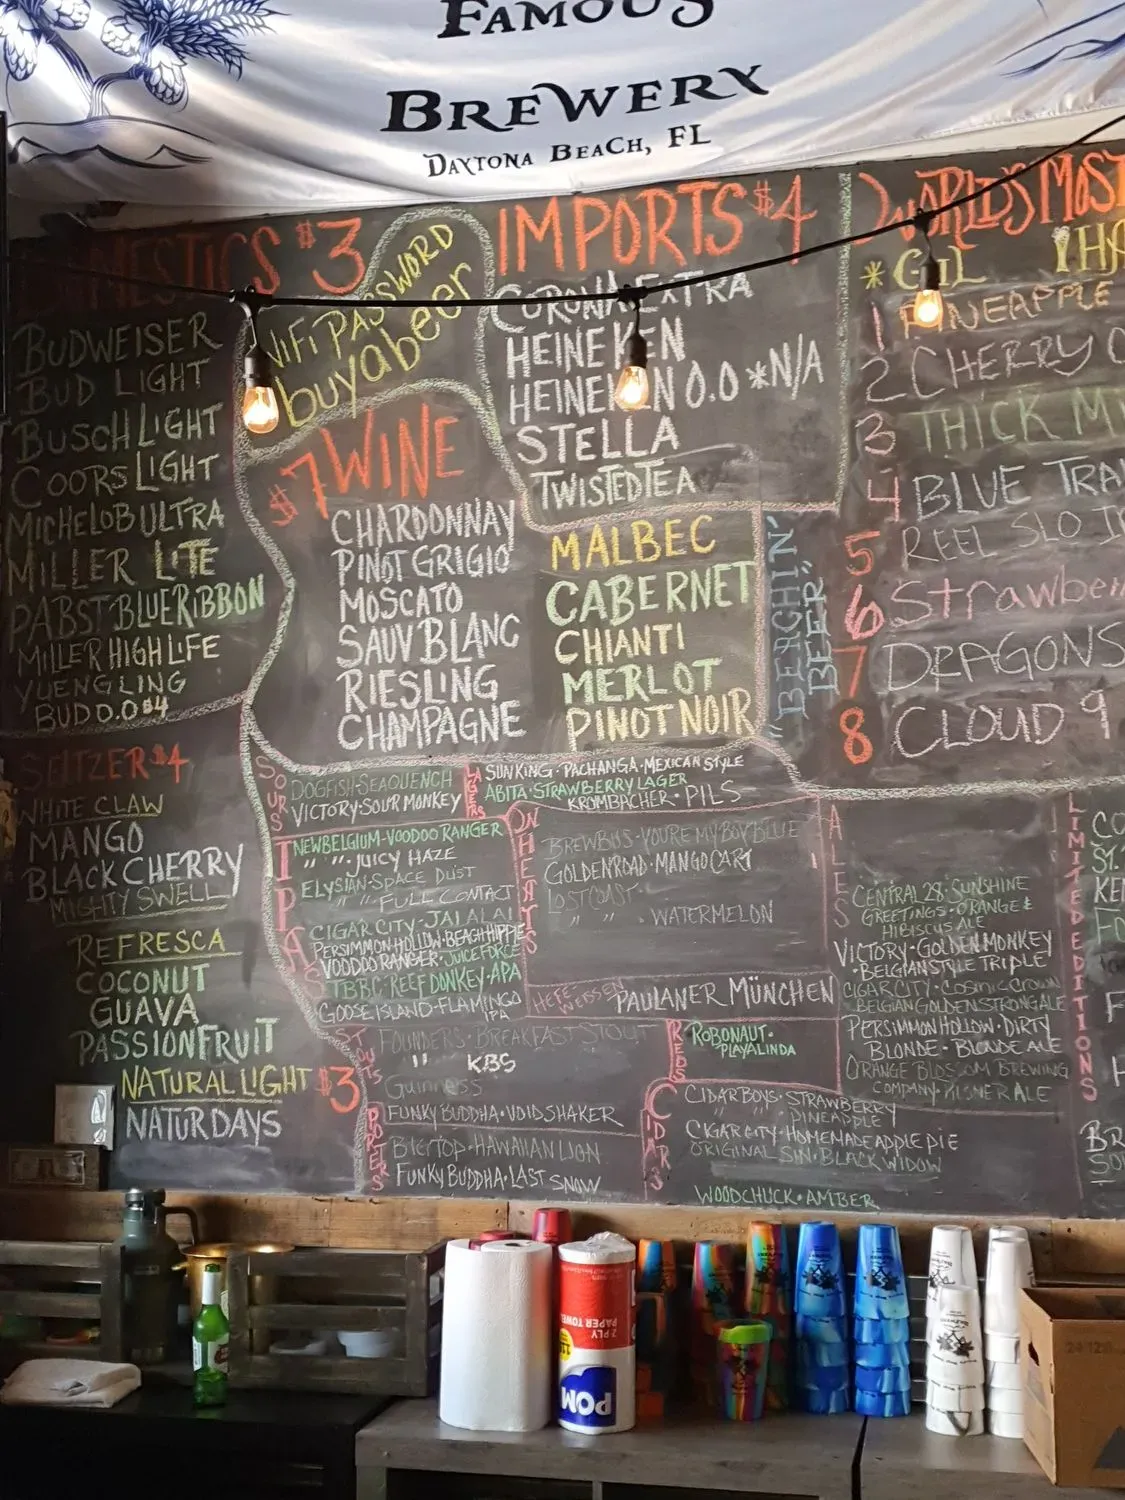 FAMOUS
BREWERY
DAYTONA BEACH, FL
DOMESTICS $3
BUDWEISER
BUD LIGHT
BUSCH LIGHT
COORS LIGHT
MICHELOB ULTRA
MILLER LITE
PABST BLUE RIBBON
MILLER HIGH LIFE
YUENGLING
BUD 0.0 $4
WIFI PASSWORD
buyabeer
IMPORTS $4
CORONA EXTRA
HEINEKEN
HEINEKEN 0.0 *N/A
STELLA
TWISTED TEA
$7 WINE
CHARDONNAY
PINOT GRIGIO
MOSCATO
SAUV BLANC
RIESLING
CHAMPAGNE
MALBEC
CABERNET
CHIANTI
MERLOT
PINOT NOIR
"BERCHIN'
BEER"
WORLD'S MOST
1 PINEAPPLE
2 CHERRY
3 THICK
4 BLUE
5 REEL SLO
6 Strawber
7 DRAGONS
8 CLOUD 9
SELTZER $4
WHITE CLAW
MANGO
BLACK CHERRY
MIGHTY SWELL
REFRESCA
COCONUT
GUAVA
PASSIONFRUIT
NATURAL LIGHT $3
NATURDAYS
SOURS
DOGFISH-SEAQUENCH
VICTORY-SOUR MONKEY
LAGERS
SUN KING · PACHANGA · MEXICAN STYLE
ABITA · STRAWBERRY LAGER
KROMBACHER · PILS
IPAS
NEW BELGIUM-VOODOO RANGER
" " - JUICY HAZE
ELYSIAN-SPACE DUST
" " FULL CONTACT
CIGAR CITY-JAI ALAI
PERSIMMON HOLLOW-BEACH HIPPIE
VOODOO RANGER · JUICE FORCE
TBBC · REEF DONKEY · APA
GOOSE ISLAND-FLAMINGO
IPA
OTHERS
BREWBUS · YOU'RE MY BOY BLUE
GOLDEN ROAD · MANGO CART
LOST COAST
" " WATERMELON
HEFEWEISSEN
PAULANER MÜNCHEN
ALES
CENTRAL 28 · SUNSHINE
GREETINGS · ORANGE &
HIBISCUS ALE
VICTORY · GOLDEN MONKEY
· BELGIAN STYLE TRIPLE
CIGAR CITY · COSMIC CROWN
BELGIAN GOLDEN STRONG ALE
PERSIMMON HOLLOW · DIRTY
BLONDE · BLONDE ALE
ORANGE BLOSSOM BREWING
COMPANY · PILSNER ALE
STOUTS
FOUNDERS · BREAKFAST STOUT
" KBS
Guinness
FUNKY BUDDHA · VOID SHAKER
PORTERS
BIG TOP · HAWAIIAN LION
FUNKY BUDDHA · LAST SNOW
REDS
ROBONAUT ·
PLAYALINDA
CIDARS
CIDARBOYS · STRAWBERRY
PINEAPPLE
CIGAR CITY · HOMEMADE APPLE PIE
ORIGINAL SIN · BLACK WIDOW
WOODCHUCK · AMBER
LIMITED EDITIONS
2-PLY
PAPER TOWEL
POM